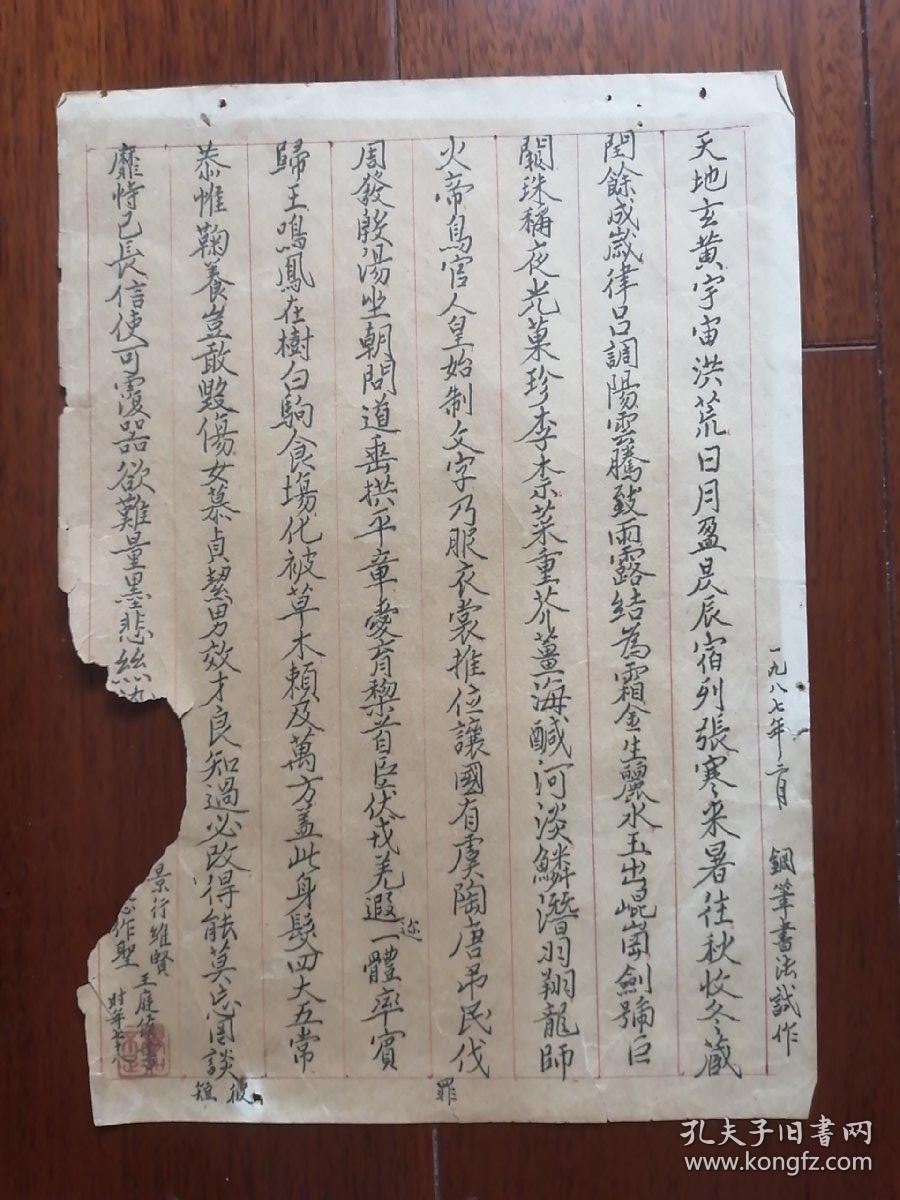 一九八七年二月　鋼筆書法試作
天地玄黃宇宙洪荒日月盈昃辰宿列張寒来暑往秋收冬藏
閏餘成嵗律呂調陽雲騰致雨露結為霜金生麗水玉出崐崗劍號巨
闕珠稱夜光菓珍李柰菜重芥薑海鹹河淡鱗潛羽翔龍師
火帝鳥官人皇始制文字乃服衣裳推位讓國有虞陶唐吊民伐
罪
周發殷湯坐朝問道垂拱平章愛育黎首臣伏戎羌遐迩一體率賓
歸王鳴鳳在樹白駒食場化被草木賴及萬方盖此身髮四大五常
恭惟鞠養豈敢毀傷女慕貞絜男效才良知過必改得能莫忘罔談
彼短
靡恃己長信使可覆器欲難量墨悲絲
景行維賢
念作聖
王庭
时年七十八
孔夫子旧书网
www.kongfz.com